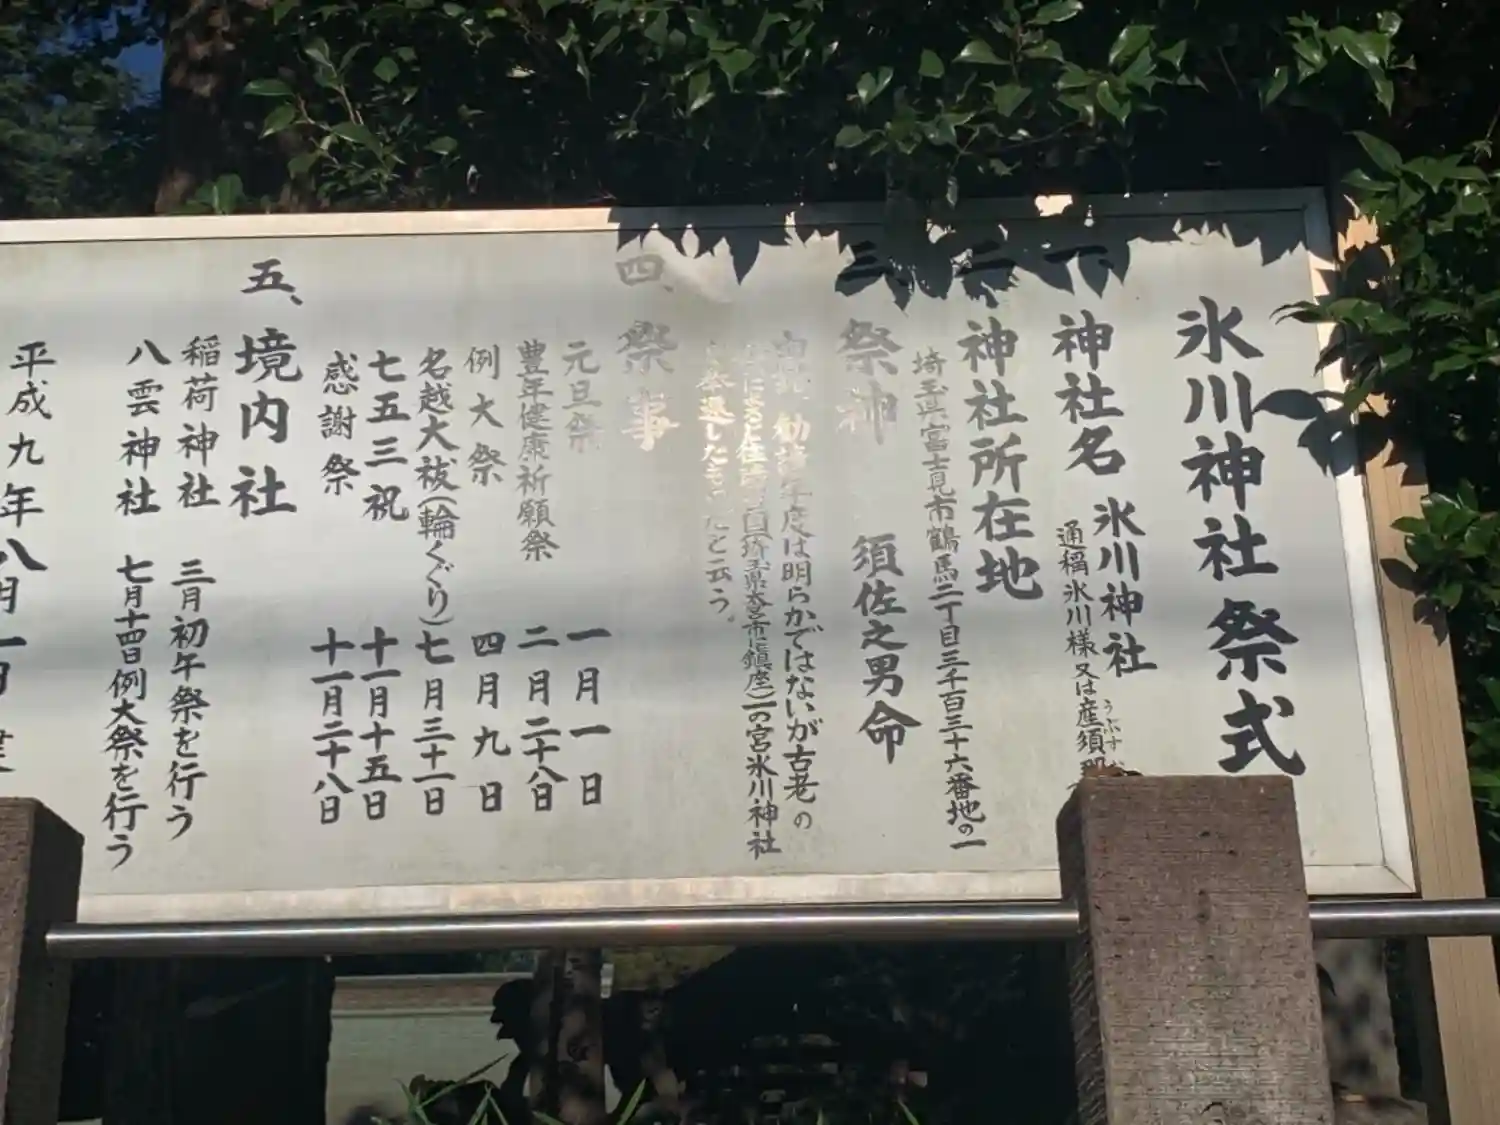 氷川神社祭式
一、神社名 氷川神社
通称氷川様又は産須那
うぶすな
二、神社所在地
埼玉県富士見市鶴馬二丁目三千百三十六番地の一
三、祭神 須佐之男命
勧請年度は明らかではないが古老の
鎮座)一の宮氷川神社
を奉遷したものだと云う。
四、祭事
元旦祭 一月一日
豊年健康祈願祭 二月二十八日
例大祭 四月九日
名越大祓(輪くぐり)七月三十一日
七五三祝 十一月十五日
感謝祭 十一月二十八日
五、境内社
稲荷神社 三月初午祭を行う
八雲神社 七月十四日例大祭を行う
平成九年八月一日